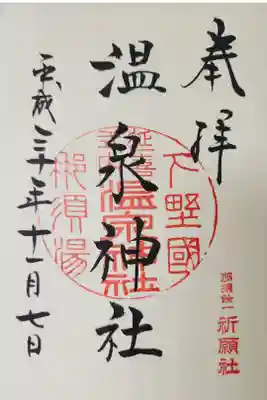 奉拝
下野國
延喜式内
温泉神社
温泉神社
那須湯本
那須餘一
祈願社
平成三十年十一月七日